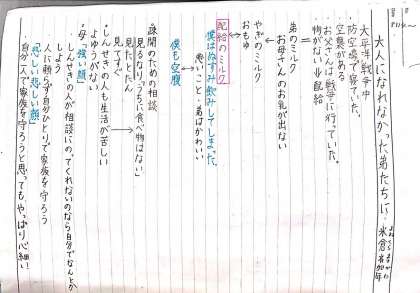 大人になれなかった弟たちに… 米倉斉加年
よねくらまさかね
太平洋戦争中
空襲がある
防空壕で寝ていた。
お父さんは戦争に行っていた。
物がない 配給
弟のミルク
＝ お母さんのお乳が出ない
やぎのミルク
おもゆ
配給のミルク
僕はぬすみ飲みしてしまった。
悪いこと・弟はかわいい
僕も空腹
疎開のための相談
見るなり「うちに食べ物はない」
見たとたん
見てすぐ
しんせきの人も生活が苦しい
よゆうがない
・母「強い顔」
しんせきの人が相談にのってくれないのなら自分でなんとか
しよう
人に頼らず自分ひとりで家族を守ろう
「悲しい悲しい顔」
・自分一人で家族を守ろうと思っても、やっぱり心細い